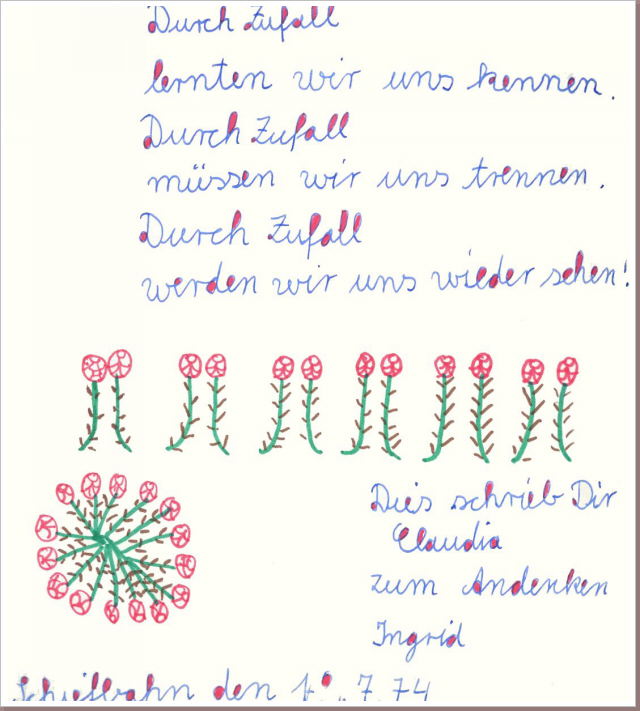 Durch Zufall
lernten wir uns kennen.
Durch Zufall
müssen wir uns trennen.
Durch Zufall
werden wir uns wieder sehen!
Dies schrieb Dir
Claudia
zum Andenken
Ingrid
den 7.74